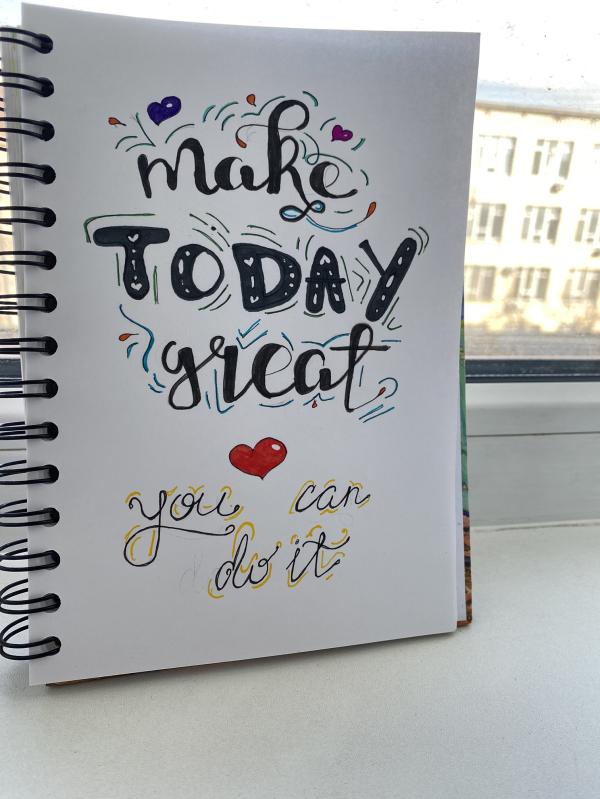 make
TODAY
great
you can
do it